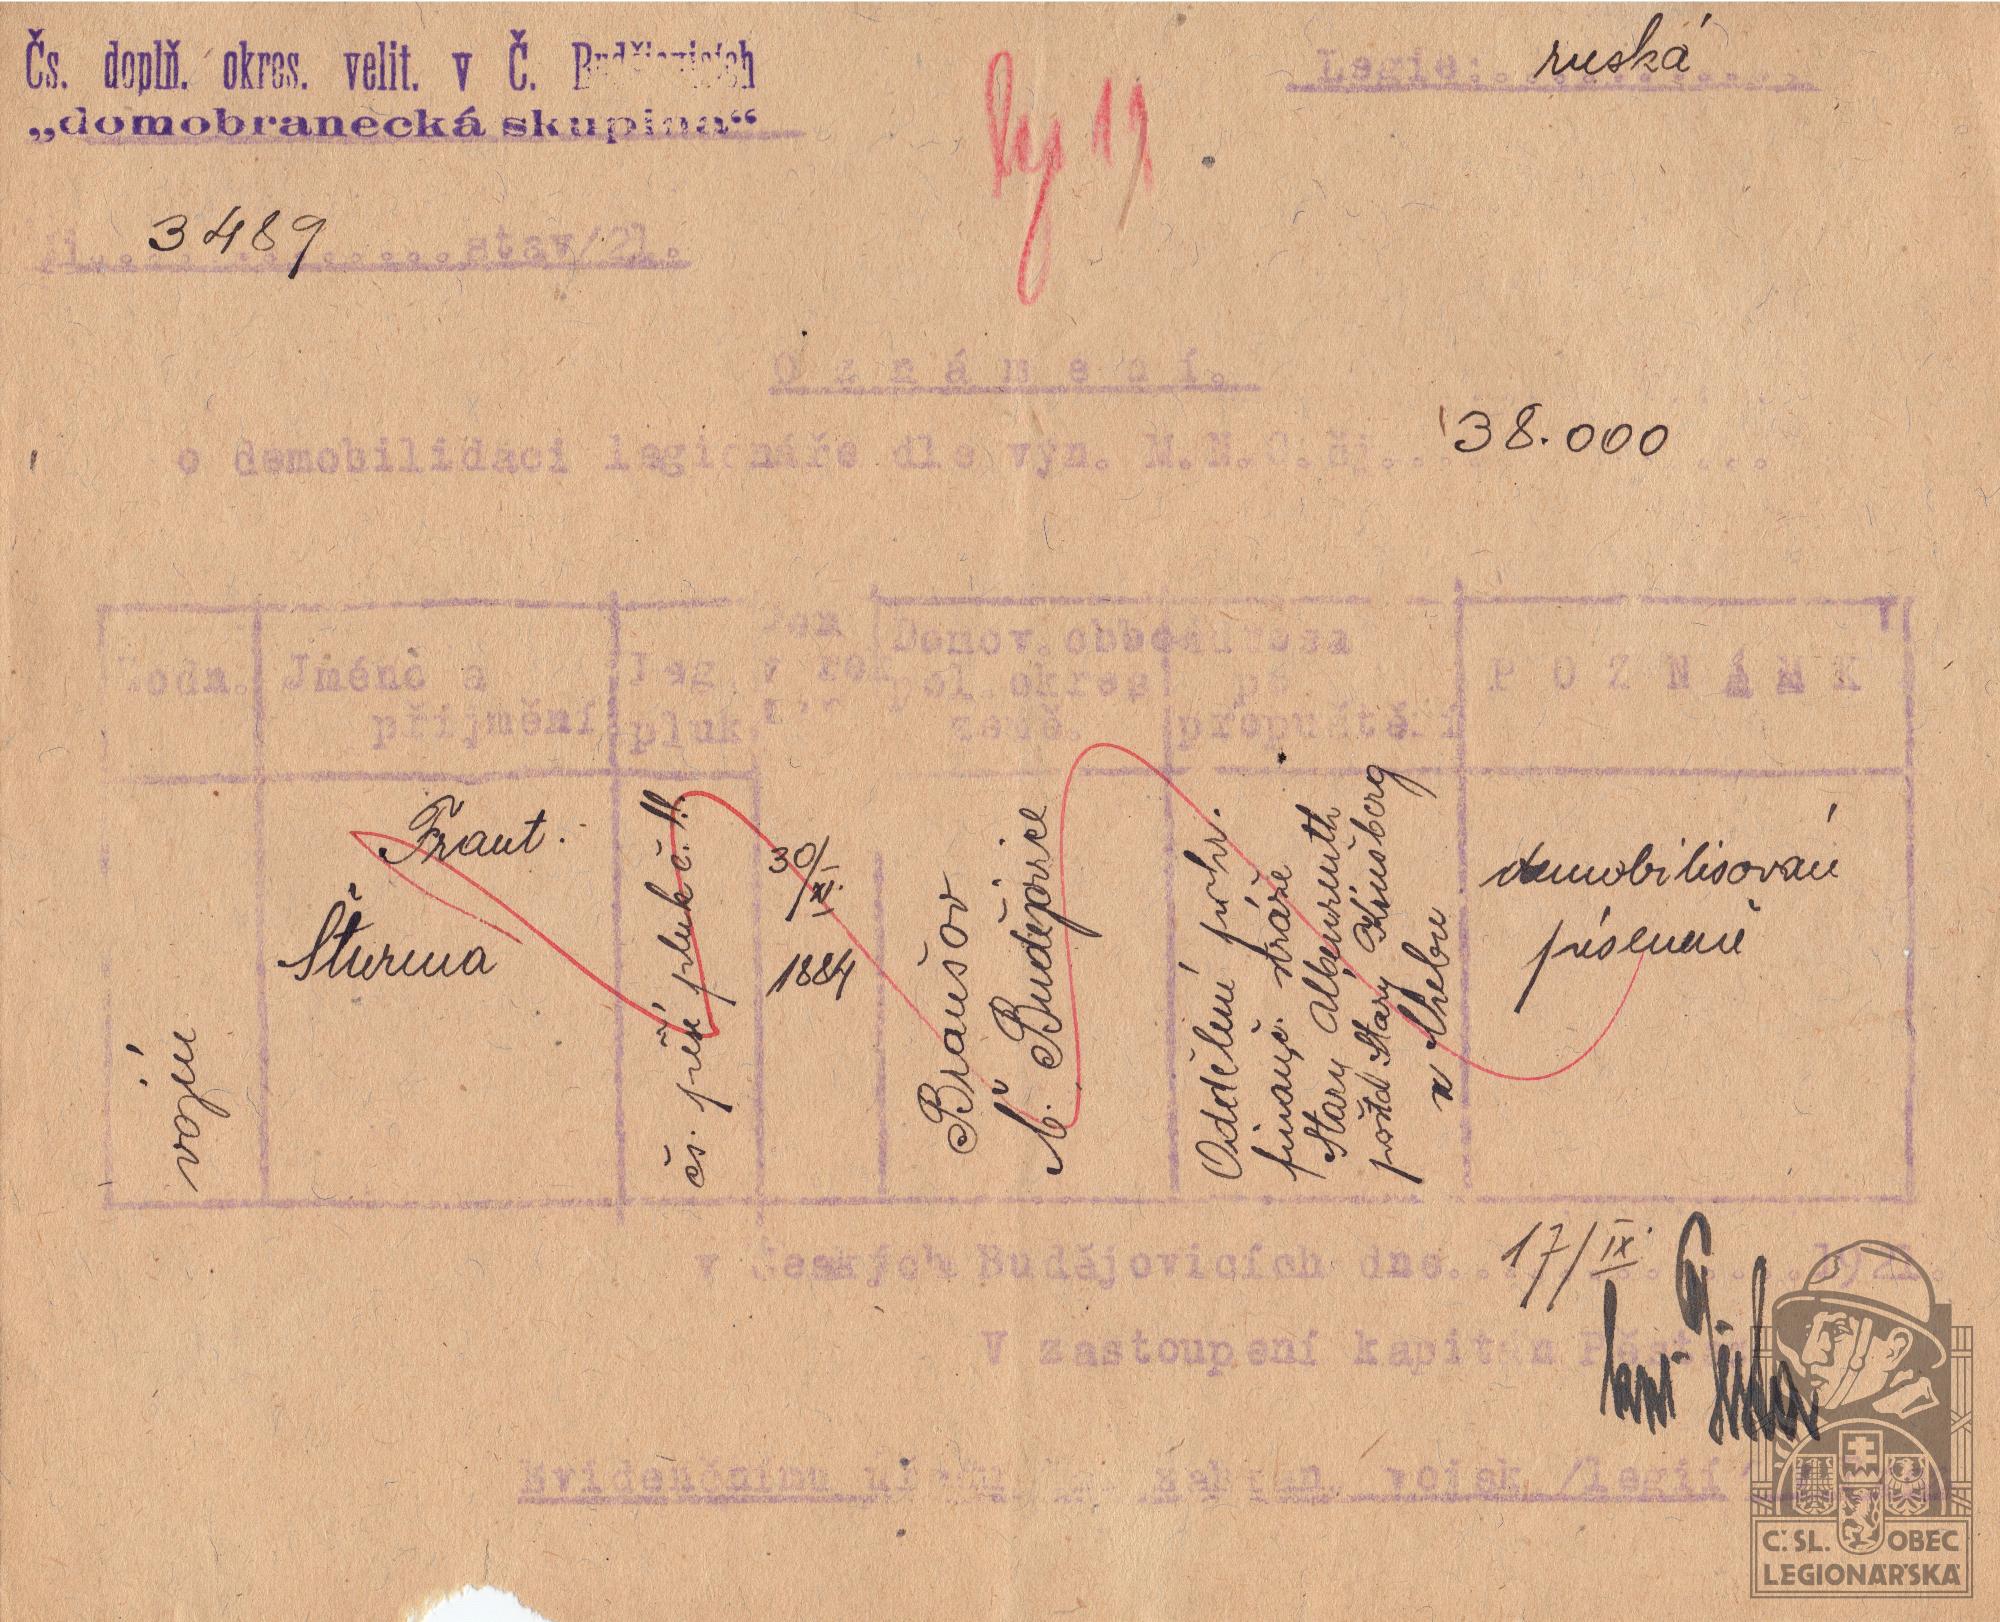 Čs. doplň. okres. velit. v Č. Budějovicích
„domobranecká skupina“
Legie: ruská
Čj. 3489 stav/21.
Oznámení.
o demobilidaci legionáře dle výn. M.N.O.čj. 38.000
Hodn.
Jméno a
příjmění
Leg.
pluk
Domov. obec
pol. okres
země.
adresa
po
propuštění
POZNÁMK
vojín
Frant.
Šturma
čs. pěší pluk č. 11.
30/XI.
1884
Branišov
Č. Budějovice
Oddělení pohr.
finanč. stráže
Starý Albenreuth
pošta Starý Kinsberg
u Chebu
demobilisován
písemně
v Českých Budějovicích dne 17/IX. 1921.
V zastoupení kapitán
Evidenčnímu zahran. vojsk /legií/
Č:SL. OBEC
LEGIONÁŘSKÁ